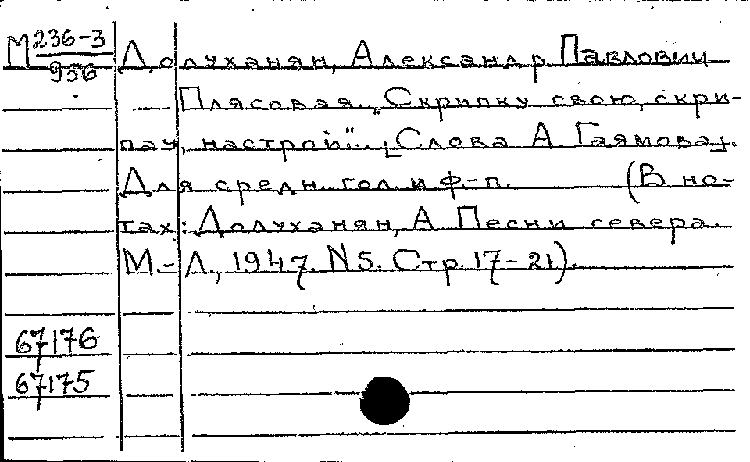 М 236-3
956
Долуханян, Александр Павлович
Плясовая. „Скрипку свою, скри-
пач, настрой". [Слова А. Гаямова].
Для средн. гол. и ф-п. (В но-
тах: Долуханян, А. Песни севера.
М.-Л., 1947. N5. Стр. 17-21).
67176
67175